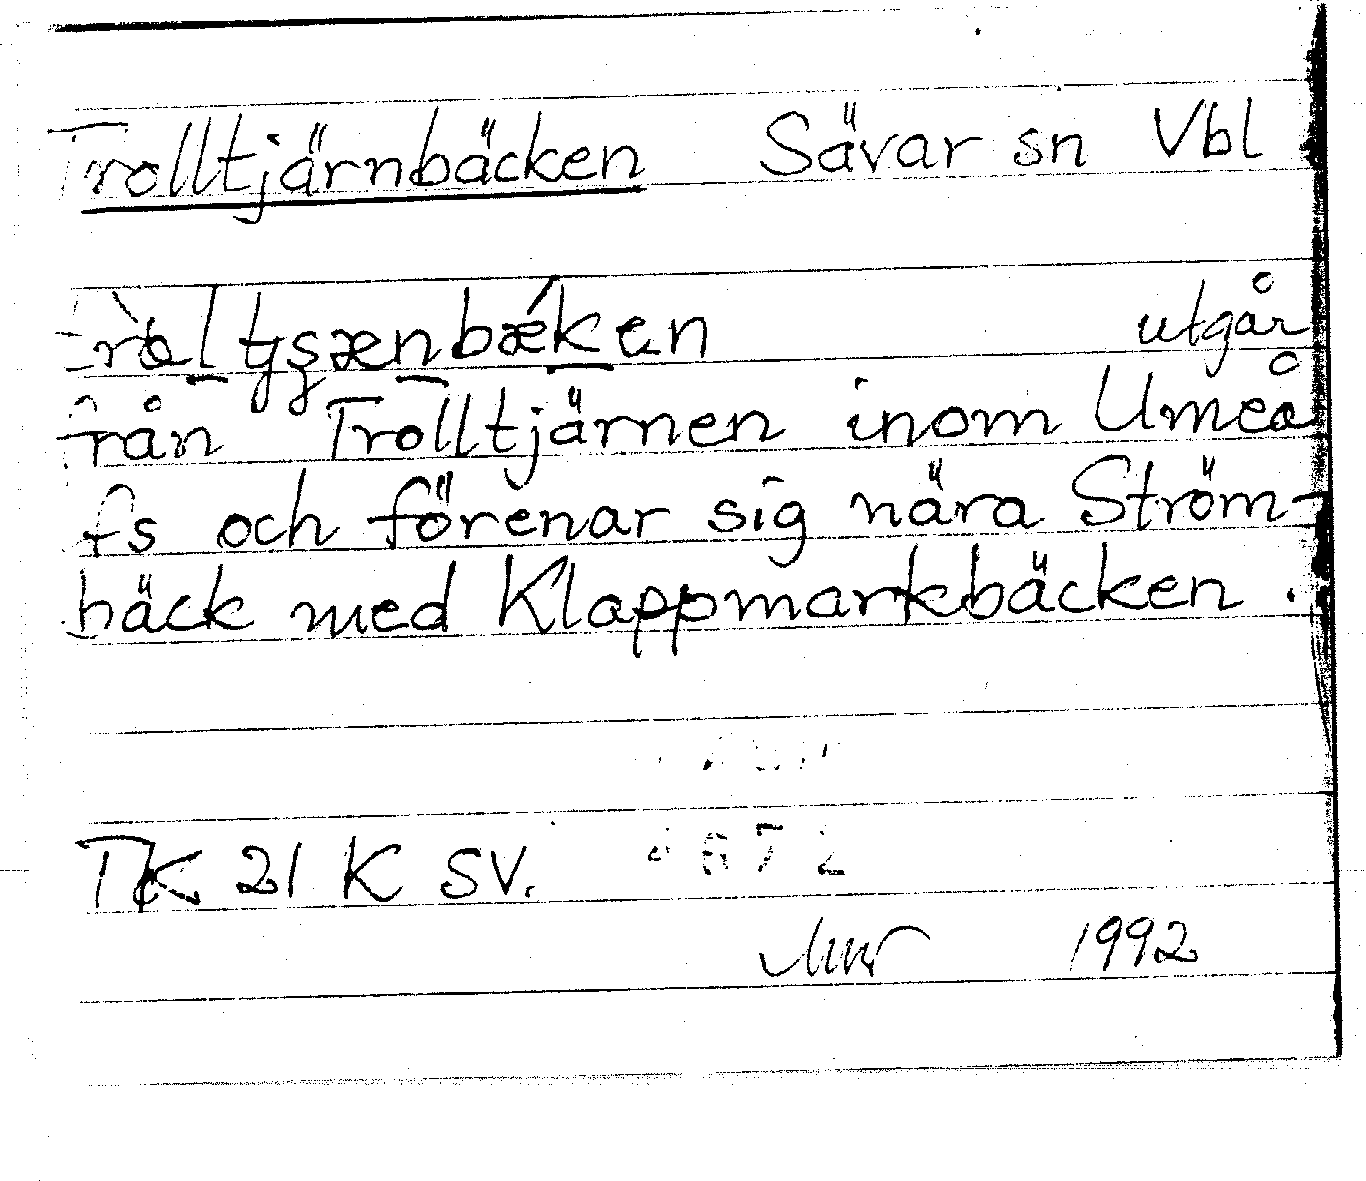 Trolltjärnbäcken Sävar sn Vbl
utgår
från Trolltjärnen inom Umeå
fs och förenar sig nära Ström-
bäck med Klappmarkbäcken.
TK 21 K SV.
1992